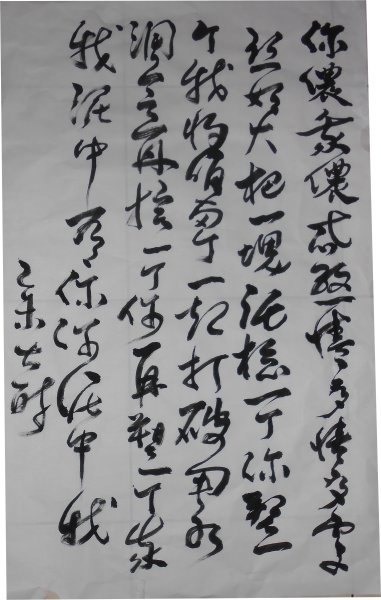 你儂我儂忒煞情多情多處
热如火把一塊泥捻一个你塑一
个我将咱两个一起打破用水
调和再捻一个你再塑一个我
我泥中有你你泥中有我
乙未